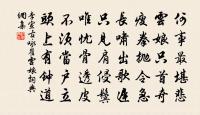 何事最堪悲
雲娘只首奇
瘦拳抛令急
長嘯出歌遲
只見肩侵鬢
唯忧骨透皮
不須當户立
頭上有鍾馗
李宣古詠崔雲娘詞典
網集